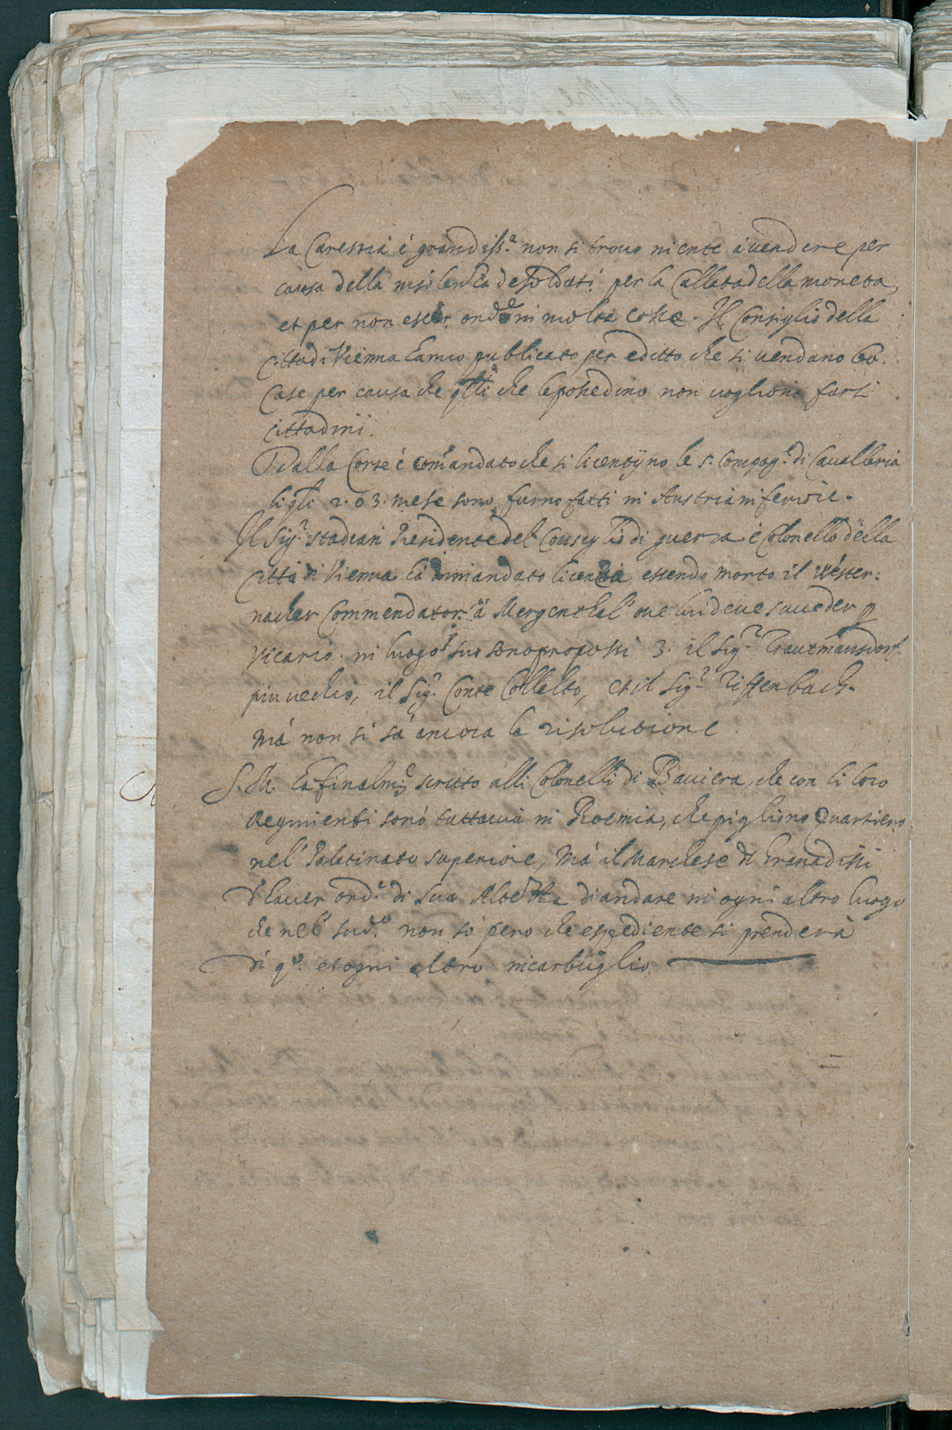 La Carestia é grandiss.ᵃ non si trova niente á vendere per
causa della insolentia de soldati, per la Callata della moneta,
et per non esser ord.ᵉ in molte cose. Il Consiglio della
città di Vienna hanno publicato per editto che si vendano 60.
Case per causa che q̃lli che le possedino non vogliono farsi
cittadini.
Dalla Corte é comandato che si licentijno le 5. Compag.ᵉ di Cavalleria
li q̃li 2. o 3. mese sono, furno fatti in Austria inferiore.
Il Sig.ʳ Stadian Presidente del Consiglio di guerra é Colonello della
città di Vienna há dimandato licenza, essendo morto il Wester:
nacher Commendator.ᵉ á Mergenthel' ove lui deve succeder p
Vicario. in luogo suo sono proposti 3. il Sig.ʳ Trautmansdorf
piu vechio, il Sig.ʳ Conte Collalto, et il Sig.ʳ Tiffenbach.
Má non si sá ancora la risolutione
S. M. há finalm.ᵉ scritto alli Colonelli di Baviera, che con li loro
Regimenti sono tuttavia in Boemia, che piglino Quartiero
nel' Palatinato superiore, Má il Marchese di Grana dissi
d'haver ord.ᵉ di sua Altezza di andare in ogni altro luogo
che nel' sud.ᵒ non so pero che espediente si prenderá
di q.ᵒ et ogni altro incarbuglio.